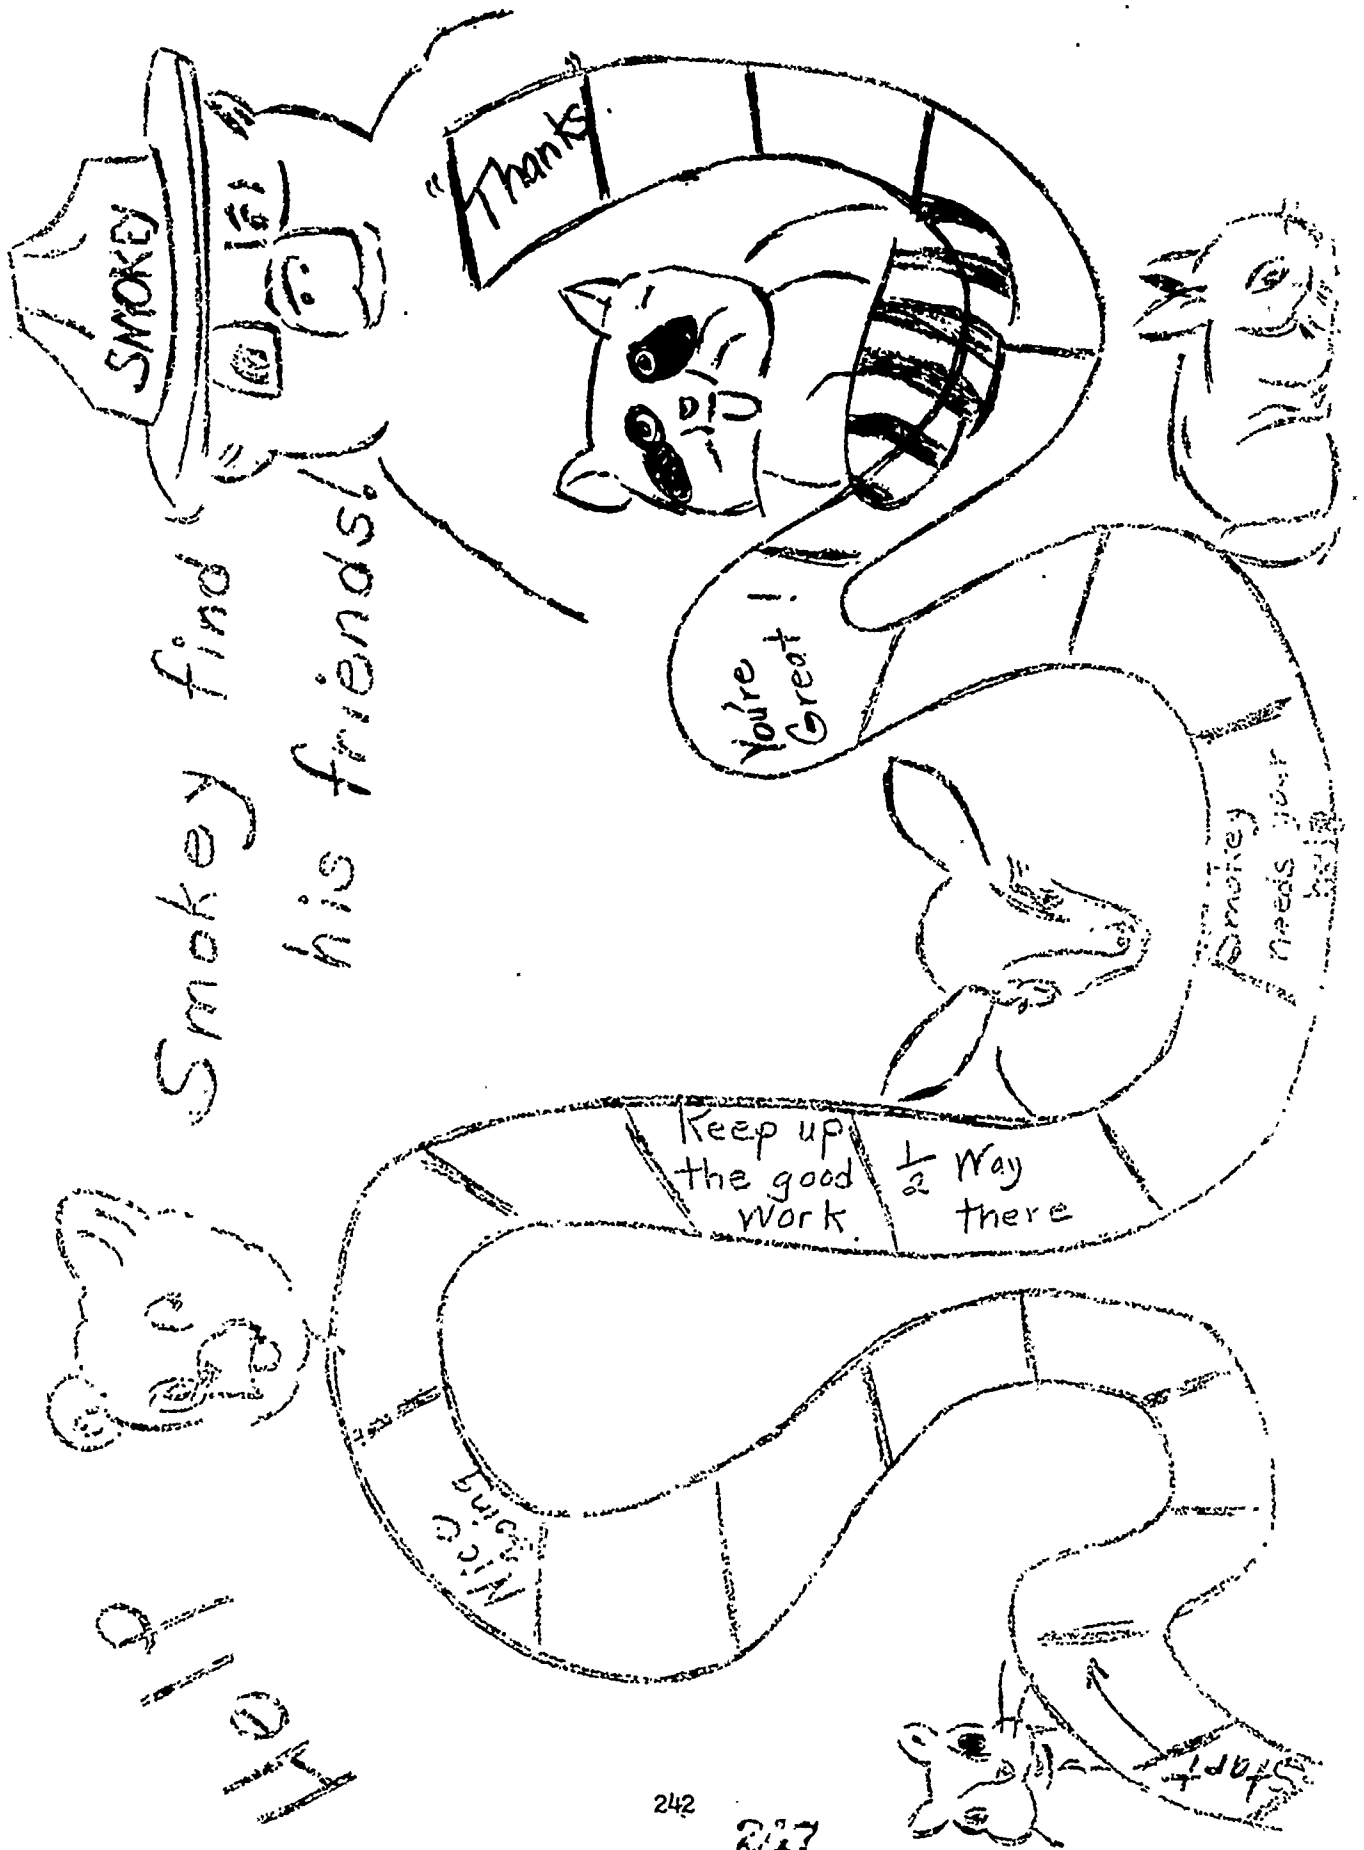 Help
Smokey find
his friends.
SMOKEY
Start
Nice
going
Keep up
the good
work.
1/2 Way
there
Smokey
needs your
help
You're
Great!
"Thanks"
242
247